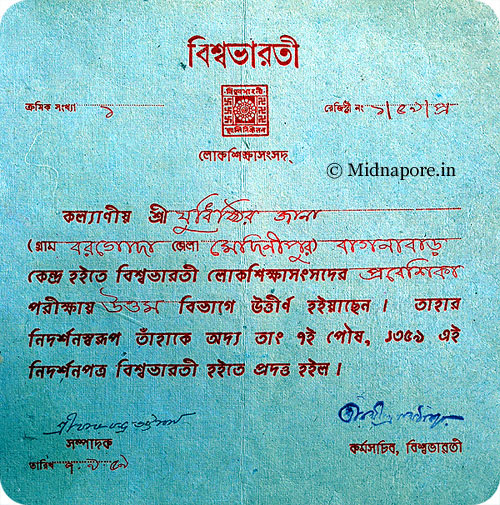 বিশ্বভারতী
ক্রমিক সংখ্যা ১ রেজিষ্ট্রী নং ১/৫৩/প্র
লোকশিক্ষাসংসদ্
© Midnapore.in
কল্যাণীয় শ্রী যুধিষ্ঠির জানা
(গ্রাম বরগোদা জেলা মেদিনীপুর) বাগনাবাড়
কেন্দ্র হইতে বিশ্বভারতী লোকশিক্ষাসংসদের প্রবেশিকা
পরীক্ষায় উত্তম বিভাগে উত্তীর্ণ হইয়াছেন। তাহার
নিদর্শনস্বরূপ তাঁহাকে অদ্য তাং ৭ই পৌষ, ১৩৫৯ এই
নিদর্শনপত্র বিশ্বভারতী হইতে প্রদত্ত হইল।
সম্পাদক
কর্মসচিব, বিশ্বভারতী
তারিখ